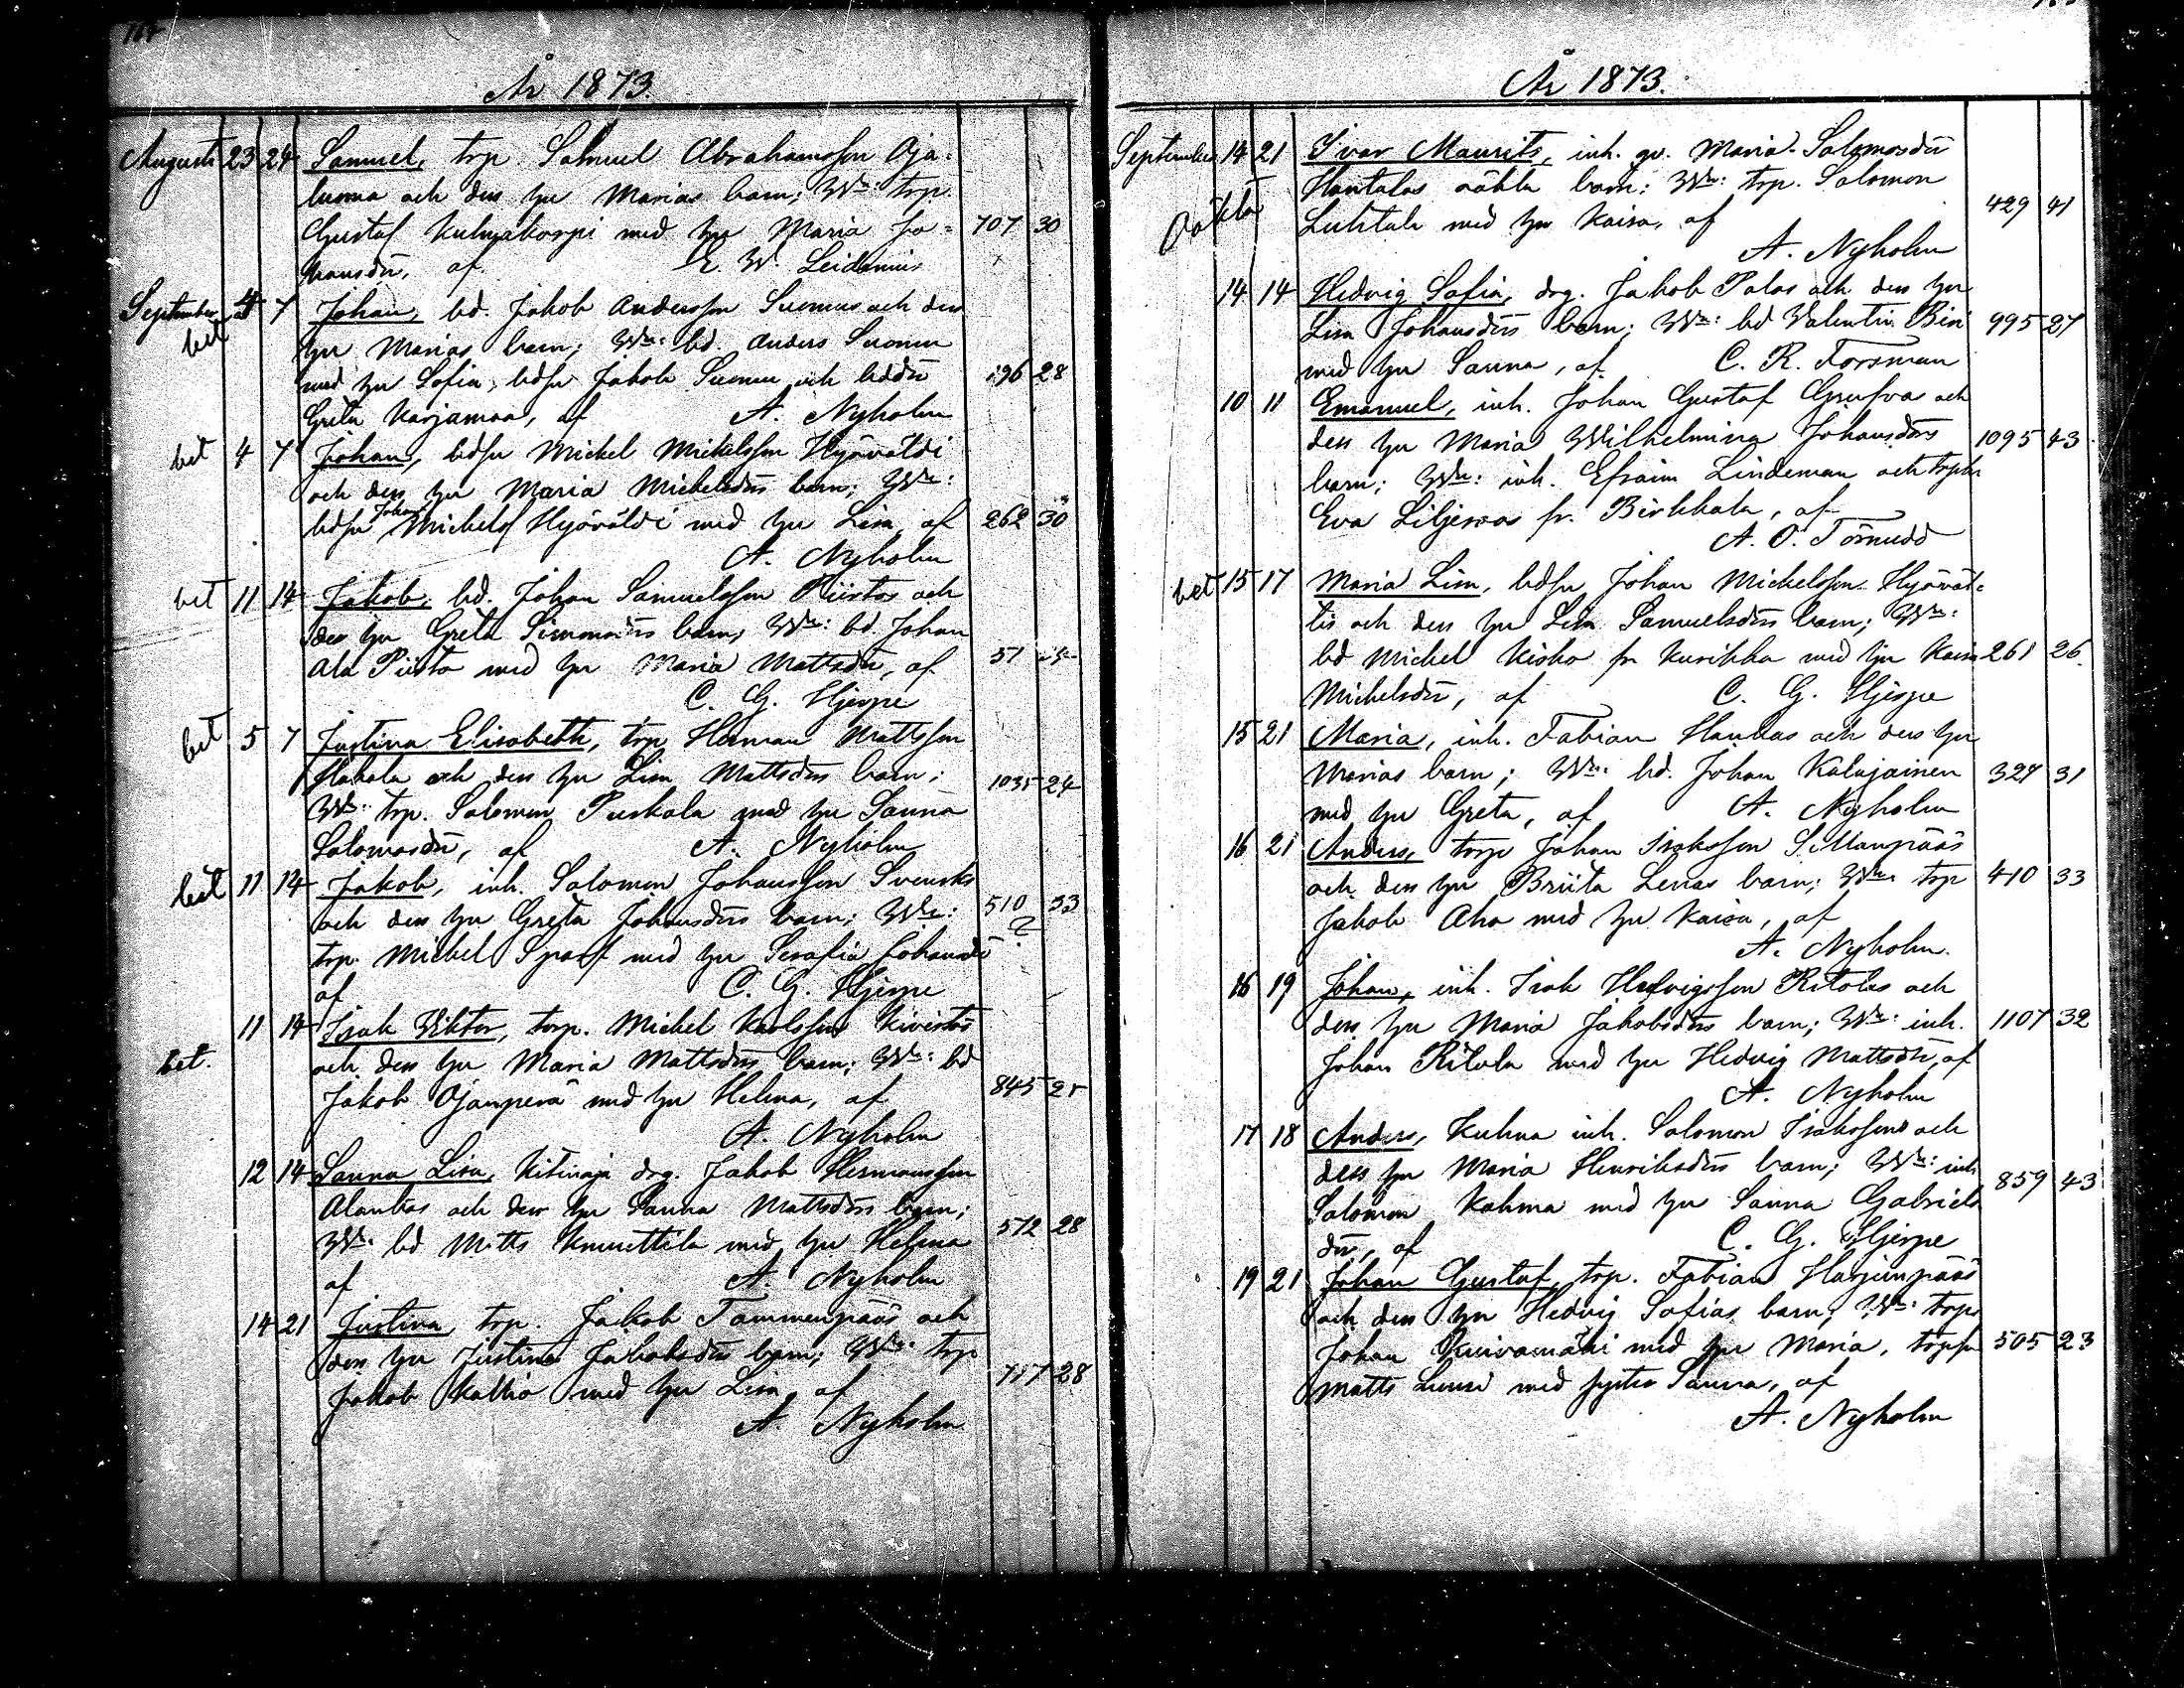 År 1873.
Augusti 23 24 Samuel, trp. Samuel Abrahamsson Oja-
luoma och dess hu Marias barn; Wn: trp.
Gustaf Kulmakorpi med hu Maria Jo- 707 30
hansdr, af E. W. Leidenius
September 4 7 Johan, bd. Jakob Andersson Suomus och dess
bet
hu Marias barn; Wn: bd. Anders Suomu
med hu Sofia, bdsn Jakob Suomu och bddr 196 28
Greta Karjamaa, af A. Nyholm
bet 4 7 Johan, bdsn Mickel Mickelsson Hyöväldi
och dess hu Maria Mickelsdrs barn; Wn:
Johan
bdsn Mickels Hyöväldi med hu Lisa, af 262 30
A. Nyholm
bet 11 14 Jakob, bd. Johan Samuelsson Piistos och
dess hu Greta Simonsdrs barn; Wn: bd. Johan
Ala Piisto med hu Maria Mattsdr, af 51
C. G. Hjerpe
bet 5 7 Justina Elisabeth, trp Herman Mattsson
Hakola och dess hu Lisa Mattsdrs barn; 1035 24
Wn: trp. Salomon Puskala med hu Sanna
Salomosdr, af A. Nyholm
bet 11 14 Jakob, inh. Salomon Johansson Svensks
och dess hu Greta Johansdrs barn; Wn: 510 33
?
trp. Mickel Sparf med hu Serafia Johansdr
af C. G. Hjerpe
11 14 Isak Viktor, torp. Mickel Karlsson Kivistös
bet. och dess hu Maria Mattsdrs barn; Wn: bd
Jakob Ojanperä med hu Helena, af 845 25
A. Nyholm
12 14 Sanna Lisa, Kitinoja drg. Jakob Hermansson
Alantas och dess hu Sanna Mattsdrs barn;
Wn: bd Matts Knuuttila med hu Helena 572 28
af A. Nyholm
14 21 Justina, trp. Jakob Tammenpääs och
dess hu Justina Jakobsdrs barn; Wn: trp
Jakob Kallio med hu Lisa, af 28
A. Nyholm
År 1873.
September 14 21 Ivar Maurits, inh. qv. Maria Salomosdr
Hantalas oäkta barn; Wn: trp. Salomon
Oäkta Luhtala med hu Kaisa, af 429 41
A. Nyholm
14 14 Hedvig Sofia, drg. Jakob Palos och dess hu
Lisa Johansdrs barn; Wn: bd Valentin Bini 995 27
med hu Sanna, af C. R. Forsman
10 11 Emanuel, inh. Johan Gustaf Grufva och
dess hu Maria Wilhelmina Johansdrs 1095 43
barn; Wn: inh. Efraim Lindeman och trphu
Eva Liljeroos fr. Birkkala, af
A. O. Törnudd
bet 15 17 Maria Lisa, bdsn Johan Mickelsson Hyöväl-
tis och dess hu Lisa Samuelsdrs barn; Wn:
bd Mickel Kisko fr Kurikka med hu Kaisa 261 26
Mickelsdr, af C. G. Hjerpe
15 21 Maria, inh. Fabian Haukas och dess hu
Marias barn; Wn: bd. Johan Kalajainen 327 31
med hu Greta, af A. Nyholm
16 21 Anders, torp Johan Isaksson Sillanpääs
och dess hu Briita Lenas barn; Wn: trp 410 33
Jakob Aho med hu Kaisa, af
A. Nyholm.
16 19 Johan, inh. Isak Hedvigsson Ritolas och
dess hu Maria Jakobsdrs barn; Wn: inh. 1107 32
Johan Ritola med hu Hedvig Mattsdr, af
A. Nyholm
17 18 Anders, Kuhna inh. Salomon Isakssons och
dess hu Maria Henriksdrs barn; Wn: inh 859 43
Salomon Kahma med hu Sanna Gabriels
dr, af C. G. Hjerpe
19 21 Johan Gustaf, trp. Fabian Harjunpääs
och dess hu Hedvig Sofias barn; Wn: trp
Johan Kuivamäki med hu Maria, trpsn 505 23
Matts Luusi med syster Sanna, af
A. Nyholm